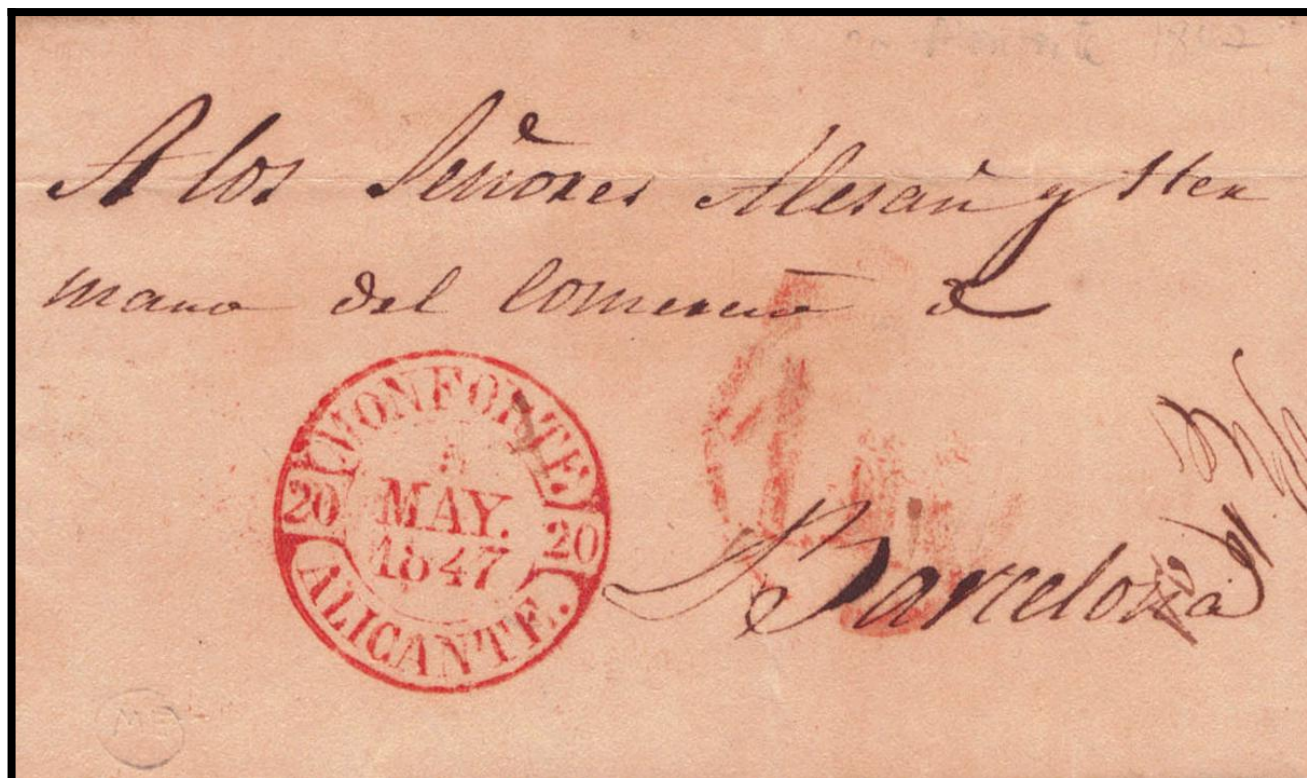 A los Señores Alesan y Her
mano del Comercio de
MONFORTE.
20 MAY. 20
1847
ALICANTE.
Barcelona